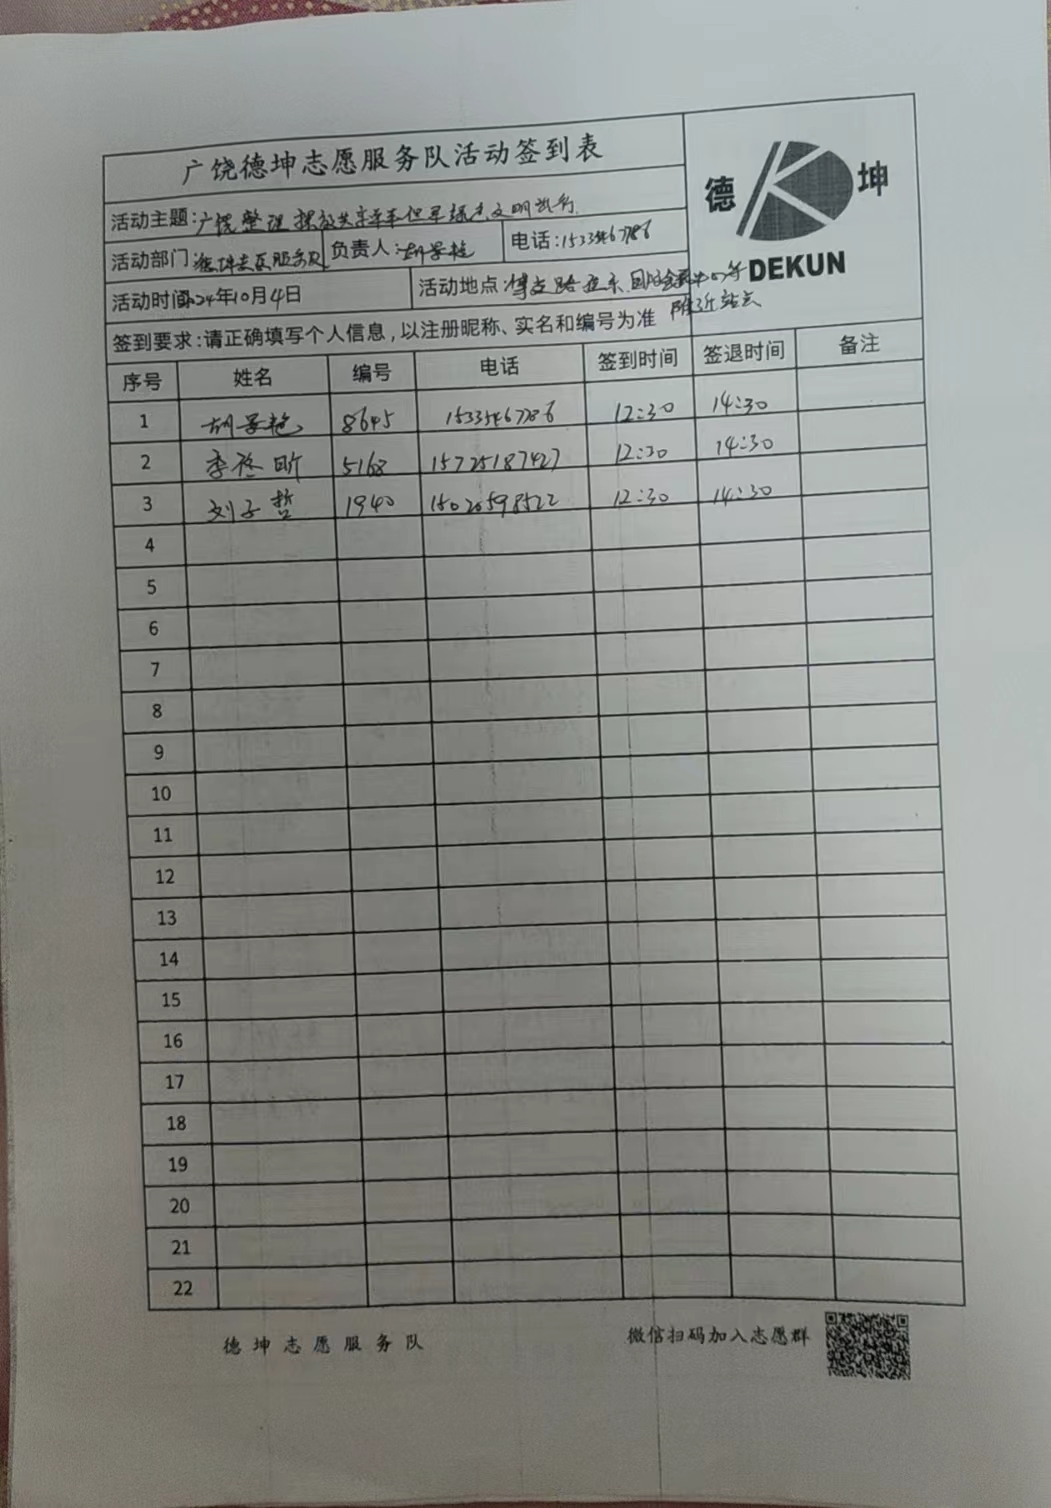 广饶德坤志愿服务队活动签到表
德 坤
DEKUN
活动主题:广饶整理摆放共享单车倡导绿色文明出行
活动部门:德坤志愿服务队 负责人:胡景艳 电话:15335467786
活动时间:2024年10月4日 活动地点:博文路
附近站点
签到要求:请正确填写个人信息,以注册昵称、实名和编号为准
序号 姓名 编号 电话 签到时间 签退时间 备注
1 胡景艳 8645 15335467786 12:30 14:30
2 李 昕 5168 15725187427 12:30 14:30
3 刘子哲 1940 15020598522 12:30 14:30
4
5
6
7
8
9
10
11
12
13
14
15
16
17
18
19
20
21
22
德坤志愿服务队 微信扫码加入志愿群